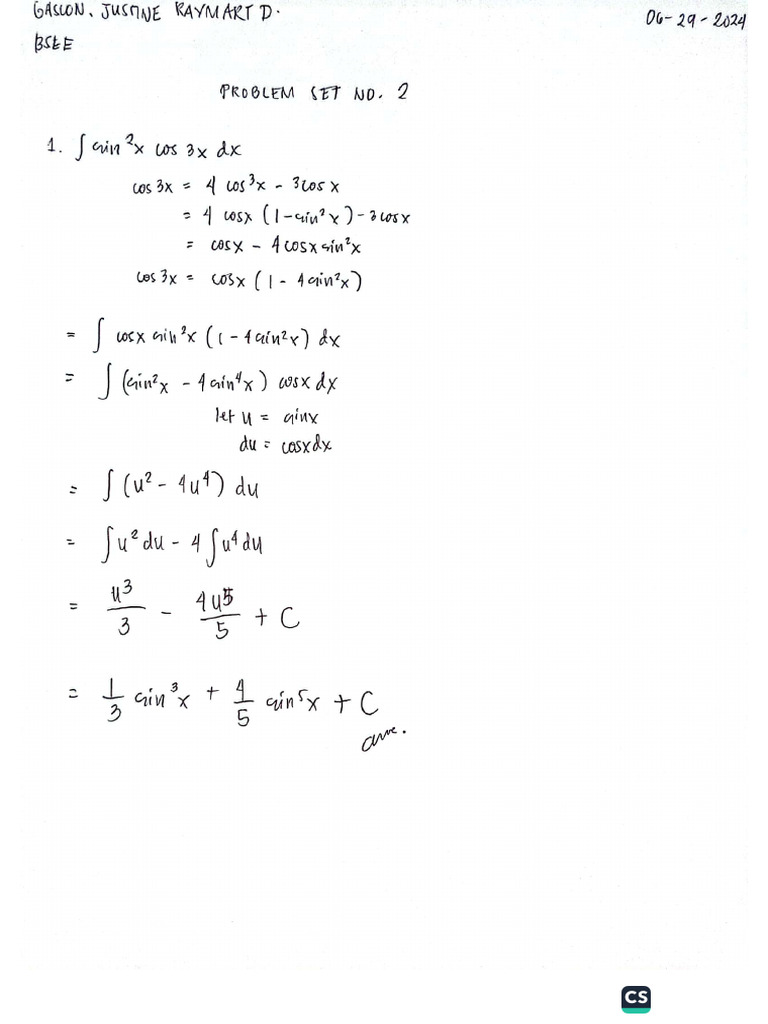 GASCON, JUSTINE RAYMART D.
06-29-2024
BSEE
PROBLEM SET NO. 2
1. ∫ sin²x cos 3x dx
cos 3x = 4 cos³x - 3cos x
= 4 cosx (1-sin²x) - 3 cosx
= cosx - 4 cosx sin²x
cos 3x = cosx (1 - 4 sin²x)
= ∫ cosx sin²x (1 - 4 sin²x) dx
= ∫ (sin²x - 4 sin⁴x) cosx dx
let u = sinx
du = cosxdx
= ∫ (u² - 4u⁴) du
= ∫u² du - 4 ∫u⁴ du
= u³/3 - 4u⁵/5 + C
= 1/3 sin³x + 4/5 sin⁵x + C
ans.
CS